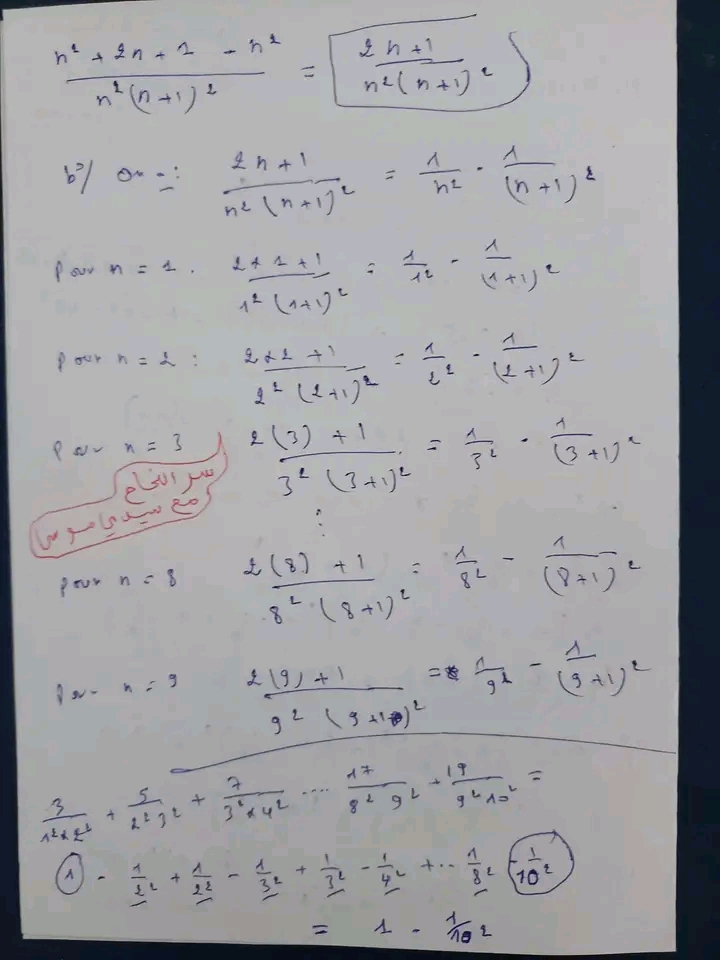 n² + 2n + 1 - n² / n²(n+1)² = 2n+1 / n²(n+1)²
b°/ On a: 2n+1 / n²(n+1)² = 1/n² - 1/(n+1)²
Pour n = 1. 2×1+1 / 1²(1+1)² = 1/1² - 1/(1+1)²
Pour n = 2: 2×2+1 / 2²(2+1)² = 1/2² - 1/(2+1)²
Pour n = 3 2(3)+1 / 3²(3+1)² = 1/3² - 1/(3+1)²
سر النجاح
مع سيدي موسى
⋮
Pour n = 8 2(8)+1 / 8²(8+1)² = 1/8² - 1/(8+1)²
Pour n = 9 2(9)+1 / 9²(9+1)² = 1/9² - 1/(9+1)²
3/1²×2² + 5/2²3² + 7/3²×4² .... 17/8²9² + 19/9²10² =
1 - 1/2² + 1/2² - 1/3² + 1/3² - 1/4² + .. 1/8² - 1/10²
= 1 - 1/10²